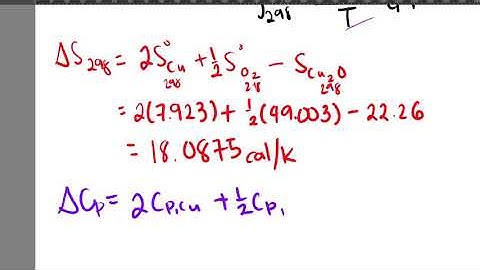 ∫298 T
ΔS298 = 2S°Cu 298 + 1/2 S°O2 298 - SCu2O 298
= 2(7.923) + 1/2(49.003) - 22.26
= 18.0875 cal/K
ΔCp = 2Cp,Cu + 1/2 Cp,